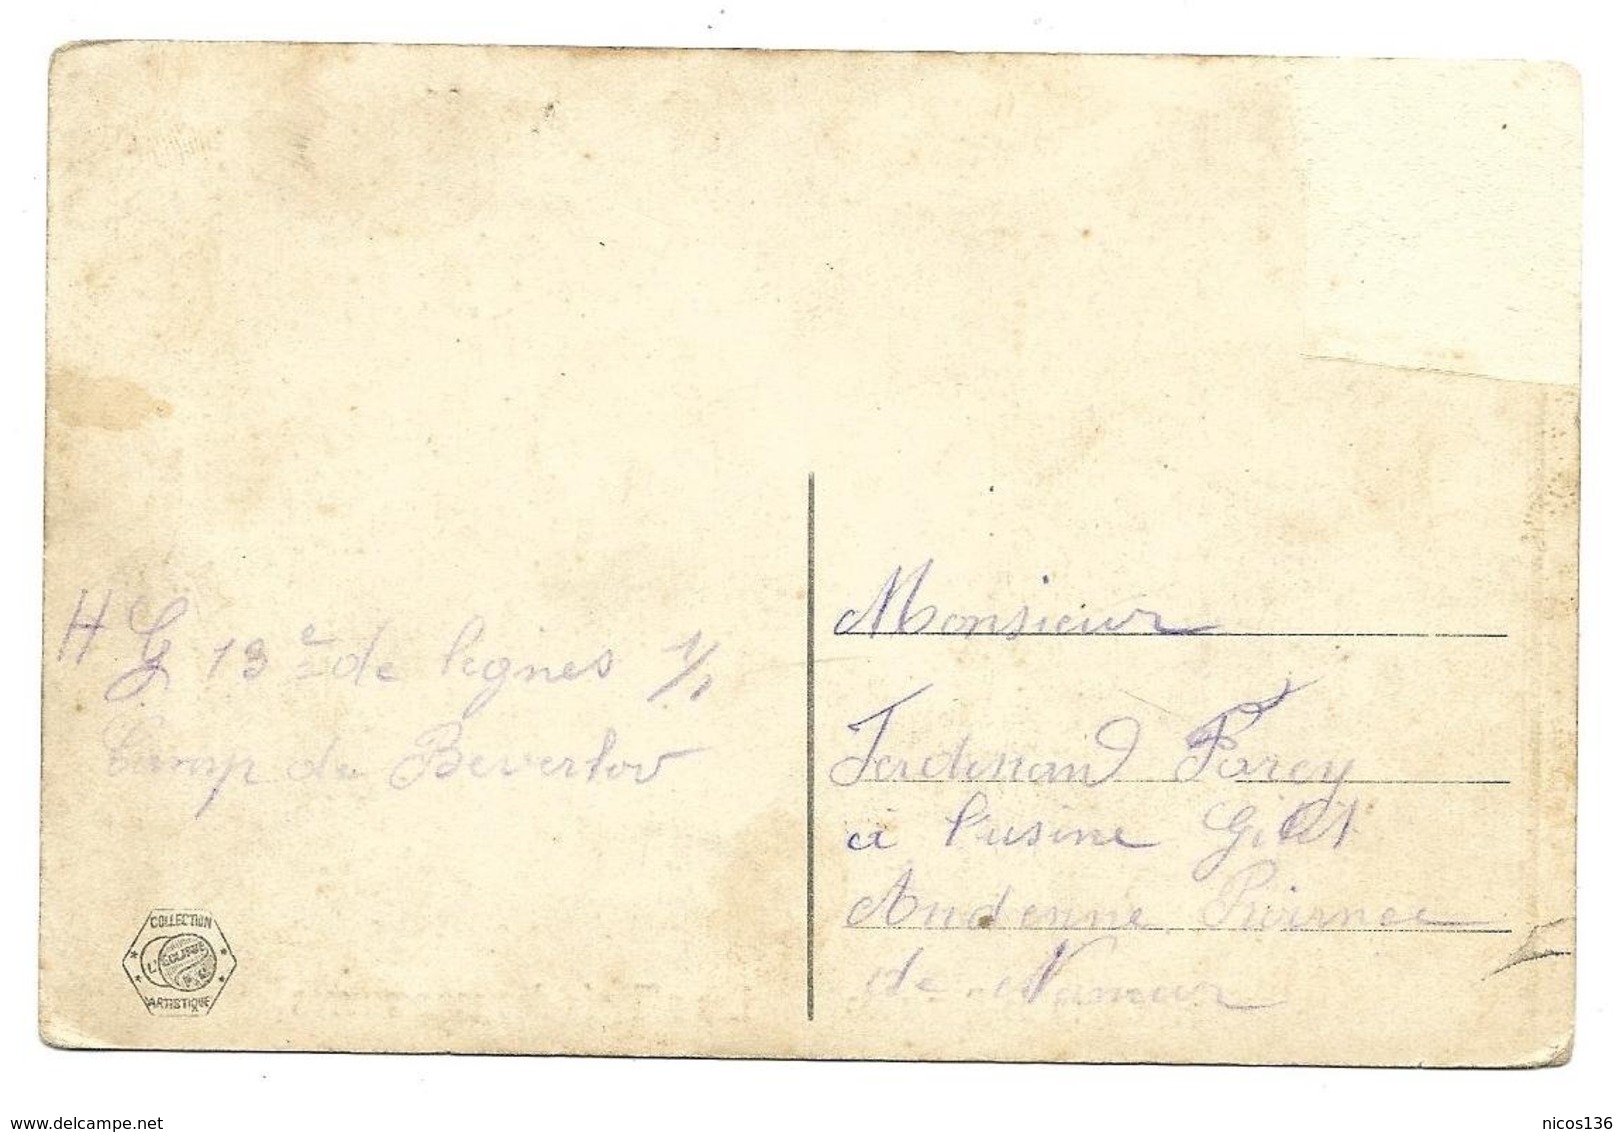 H G 13e de lignes 1/1
Camp de Beverlov
COLLECTION
L'ÉCLIPSE
ARTISTIQUE
Monsieur
Ferdinand Farcy
à l'usine Gilet
Andenne Provinnce
de Namur
www.delcampe.net
nicos136